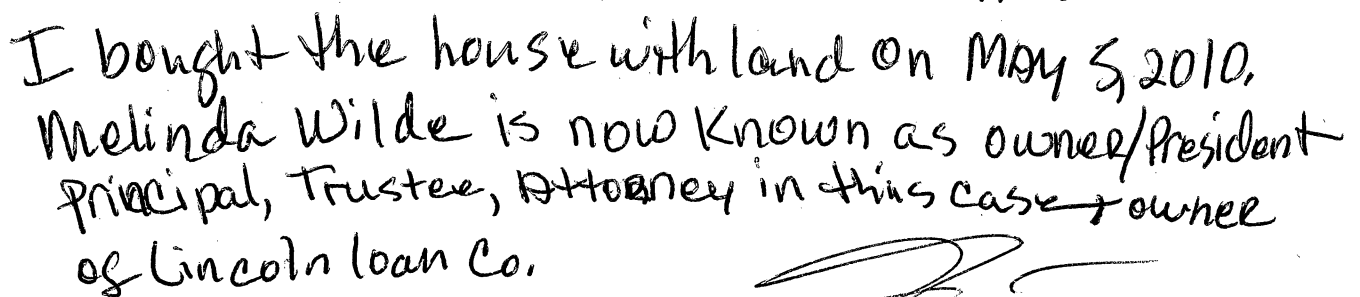 I bought the house with land on May 5, 2010.
Melinda Wilde is now known as owner/President
principal, Trustee, Attorney in this case + owner
of Lincoln Loan Co.